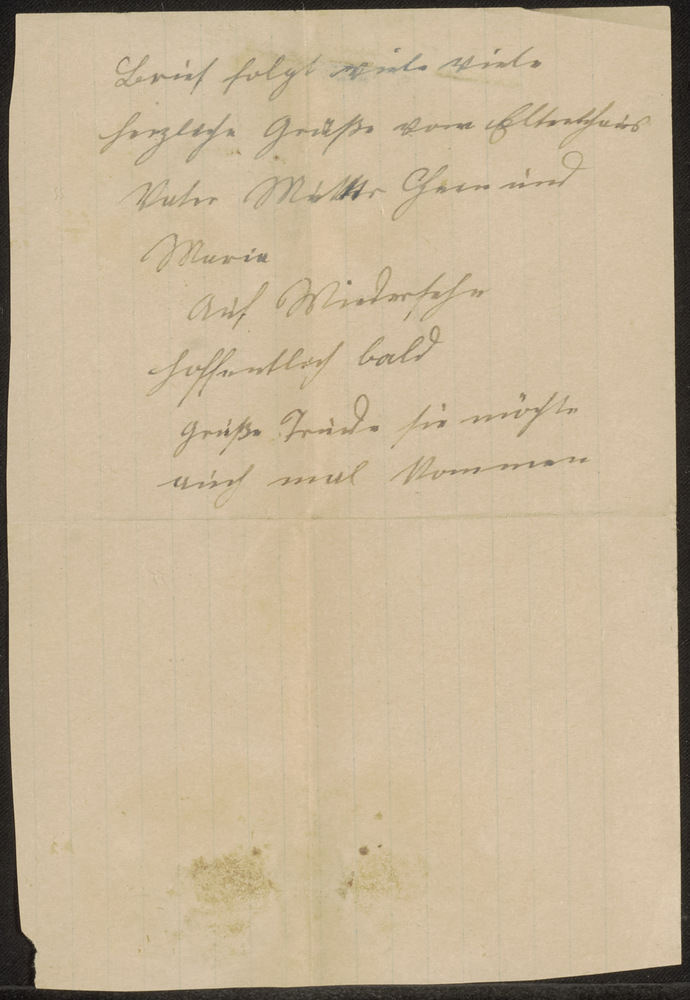 Brief folgt viele viele
herzliche Grüße vom Elternhaus
Vater Mutter und
Maria
Auf Wiedersehn
hoffentlich bald
grüße Trude sie möchte
auch mal kommen